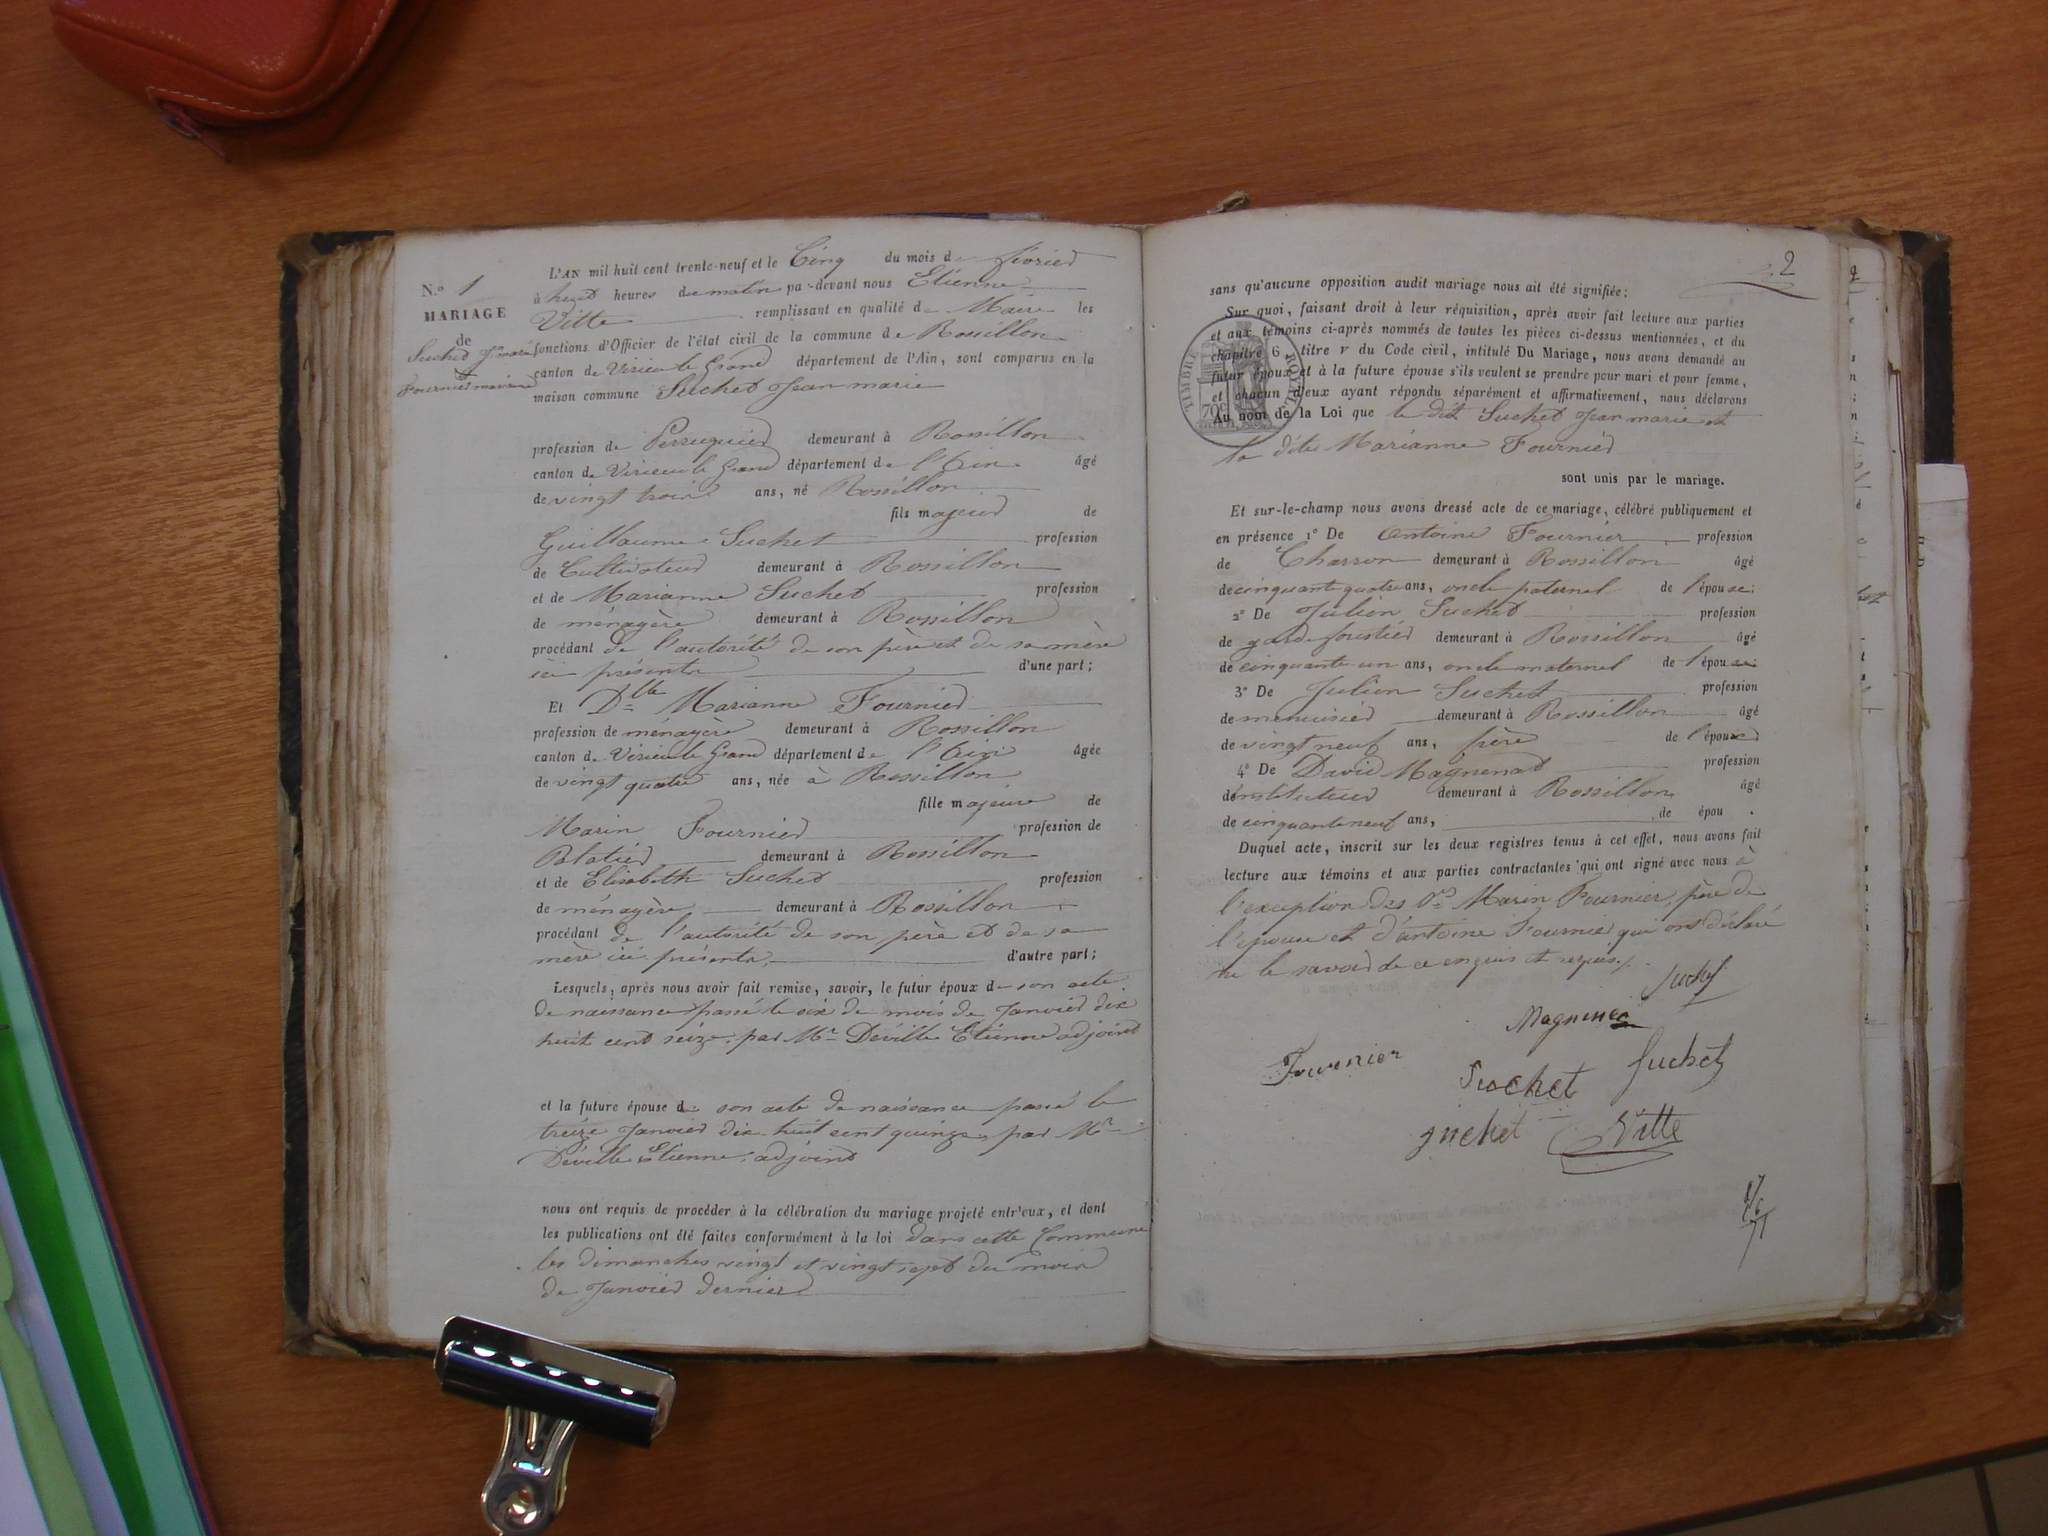 N.º 1
MARIAGE
de
Suchet Jn marie
et
Fournier marianne
L'AN mil huit cent trente-neuf et le Cinq du mois de février
à heures du matin par-devant nous Etienne
Vitte remplissant en qualité de Maire les
fonctions d'Officier de l'état civil de la commune de Rossillon
canton de Virieu le Grand département de l'Ain, sont comparus en la
maison commune Suchet Jean marie
profession de Perruquier demeurant à Rossillon
canton de Virieu le Grand département de l'Ain âgé
de vingt trois ans, né Rossillon
fils majeur de
Guillaume Suchet profession
de Cultivateur demeurant à Rossillon
et de Marianne Suchet profession
de ménagère demeurant à Rossillon
procédant de l'autorité de son père et de sa mère
ici présents d'une part;
Et Dlle Marianne Fournier
profession de ménagère demeurant à Rossillon
canton de Virieu le Grand département de l'Ain âgée
de vingt quatre ans, née à Rossillon
fille majeure de
Marin Fournier profession de
demeurant à Rossillon
et de Elisabeth Suchet profession
de ménagère demeurant à Rossillon
procédant de l'autorité de son père et de sa
mère ici présents d'autre part;
Lesquels, après nous avoir fait remise, savoir, le futur époux de son acte
de naissance passé le six de mois de Janvier dix
huit cent seize par Mr Déville Etienne adjoint
et la future épouse de son acte de naissance passé le
treize Janvier dix huit cent quinze, par Mr
Déville Etienne adjoint
nous ont requis de procéder à la célébration du mariage projeté entr'eux, et dont
les publications ont été faites conformément à la loi dans cette Commune
les dimanches vingt et vingt sept du mois
de Janvier dernier
2
sans qu'aucune opposition audit mariage nous ait été signifiée:
Sur quoi, faisant droit à leur réquisition, après avoir fait lecture aux parties
et aux témoins ci-après nommés de toutes les pièces ci-dessus mentionnées, et du
chapitre 6, titre v du Code civil, intitulé Du Mariage, nous avons demandé au
futur époux et à la future épouse s'ils veulent se prendre pour mari et pour femme,
et chacun d'eux ayant répondu séparément et affirmativement, nous déclarons
Au nom de la Loi que le dit Suchet Jean marie et
la dite Marianne Fournier
TIMBRE ROYAL
70c
sont unis par le mariage.
Et sur-le-champ nous avons dressé acte de ce mariage, célébré publiquement et
en présence 1º De Antoine Fournier profession
de Charron demeurant à Rossillon âgé
de cinquante quatre ans, oncle paternel de l'épouse;
2º De Julien Suchet profession
de garde forestier demeurant à Rossillon âgé
de cinquante un ans, oncle maternel de l'épouse
3º De Julien Suchet profession
de menuisier demeurant à Rossillon âgé
de vingt neuf ans, frère de l'époux
4º De David Magnenat profession
d'instituteur demeurant à Rossillon âgé
de cinquante neuf ans, de épou .
Duquel acte, inscrit sur les deux registres tenus à cet effet, nous avons fait
lecture aux témoins et aux parties contractantes qui ont signé avec nous à
l'exception des Srs Marin Fournier père de
l'épouse et d'antoine Fournier qui ont déclaré
ne le savoir de ce enquis et requis.
Suchet
Magnenat
Fournier
Suchet
Suchet
Suchet
Vitte